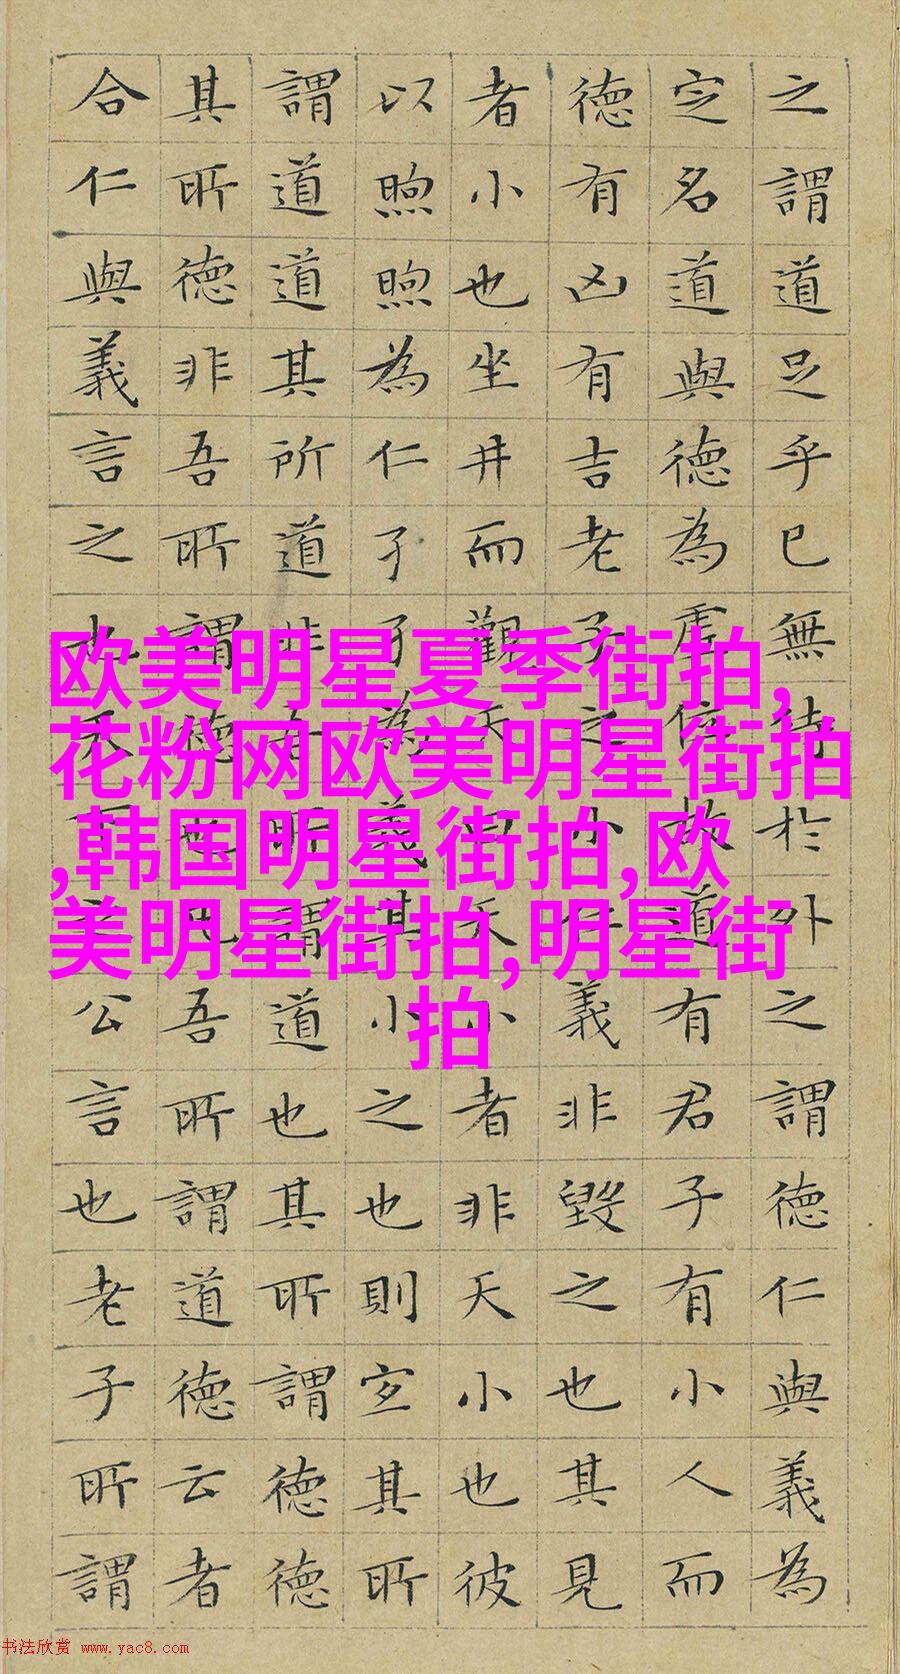 之謂道足乎已無待於外之謂德仁與義為
定名道與德為虛位故道有君子有小人而
德有凶有吉老子之小仁義非毀之也其見
者小也坐井而觀天曰天小者非天小也彼
以煦煦為仁孑孑為義其小之也則宜其所
謂道道其所道非吾所謂道也其所謂德德
其所德非吾所謂德也凡吾所謂道德云者
合仁與義言之也天下之公言也老子所謂
欧美明星夏季街拍,
花粉网欧美明星街拍
,韩国明星街拍,欧
美明星街拍,明星街
拍
书法欣赏 www.yac8.com